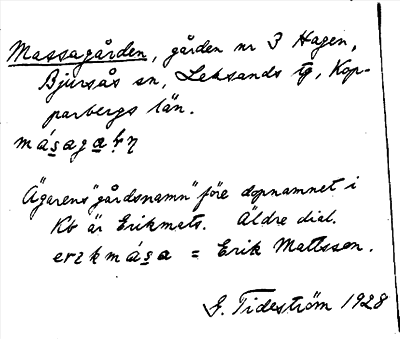 Massagården, gården nr 3 Hagen,
Bjursås sn, Leksands tg, Kop-
parbergs län.
másaga
Ägarens "gårdsnamn" före dopnamnet i
Kb är Erikmats. Äldre dial.
erɩkmása = Erik Mattsson.
G. Tideström 1928